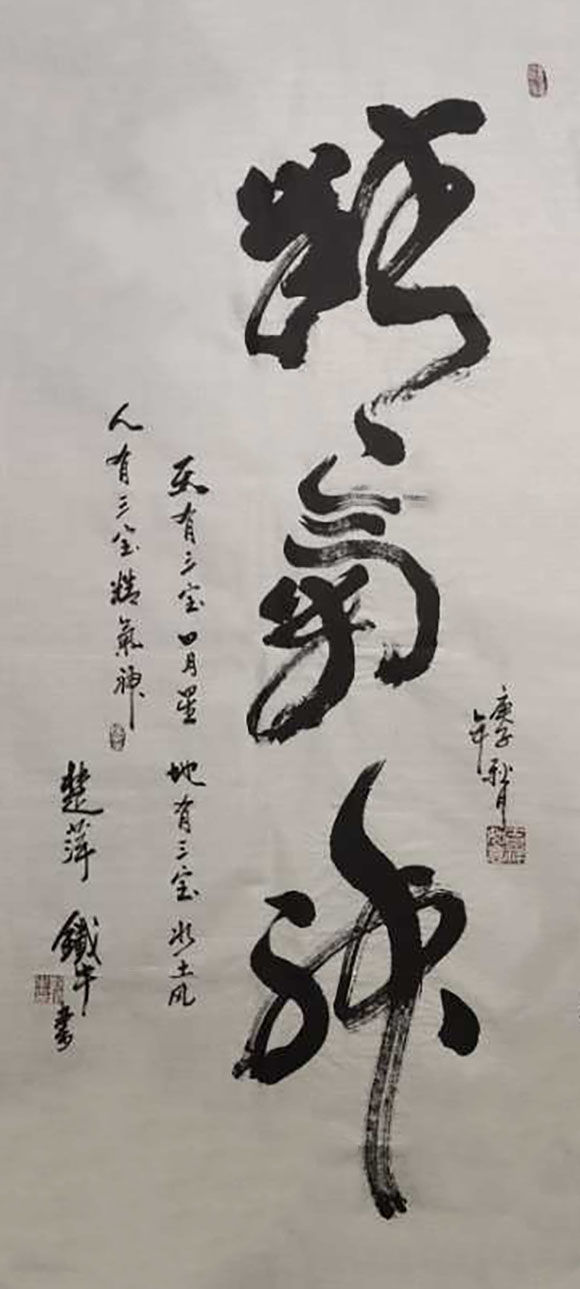 精氣神
庚子年秋月
天有三宝日月星 地有三宝水土风
人有三宝精氣神
楚萍 鐵牛書